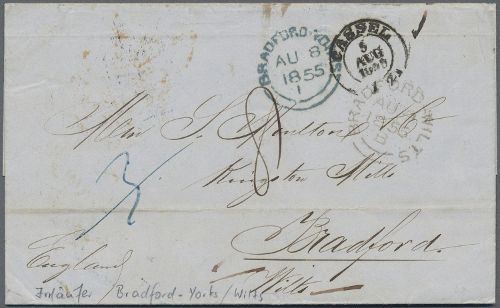 BRADFORD-YORKS
AU 8
1855
1
CASSEL
5
AUG
1855
BRADFORD WILTS
AU
1855
8
Kingston Mills
Bradford
Wilts
3
England
Irrläufer / Bradford-Yorks / Wilts